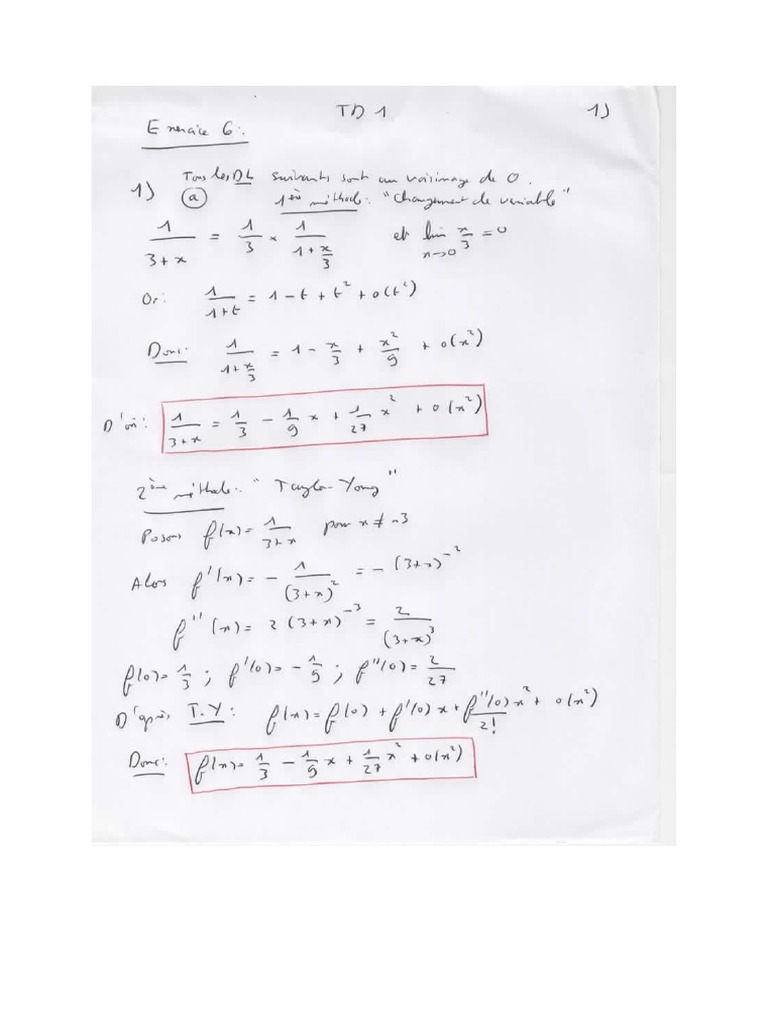 TD 1 1)
Exercice 6 :
Tous les DL suivants sont au voisinage de 0.
1) (a) 1ère méthode : "Changement de variable"
1/(3+x) = 1/3 × 1/(1+x/3) et lim x→0 x/3 = 0
Or : 1/(1+t) = 1 - t + t² + o(t²)
Donc : 1/(1+x/3) = 1 - x/3 + x²/9 + o(x²)
D'où : 1/(3+x) = 1/3 - 1/9 x + 1/27 x² + o(x²)
2ème méthode : "Taylor-Young"
Posons f(x) = 1/(3+x) pour x ≠ -3
Alors f'(x) = - 1/(3+x)² = - (3+x)⁻²
f''(x) = 2 (3+x)⁻³ = 2/(3+x)³
f(0) = 1/3 ; f'(0) = - 1/9 ; f''(0) = 2/27
D'après T.Y : f(x) = f(0) + f'(0) x + f''(0)/2! x² + o(x²)
Donc : f(x) = 1/3 - 1/9 x + 1/27 x² + o(x²)